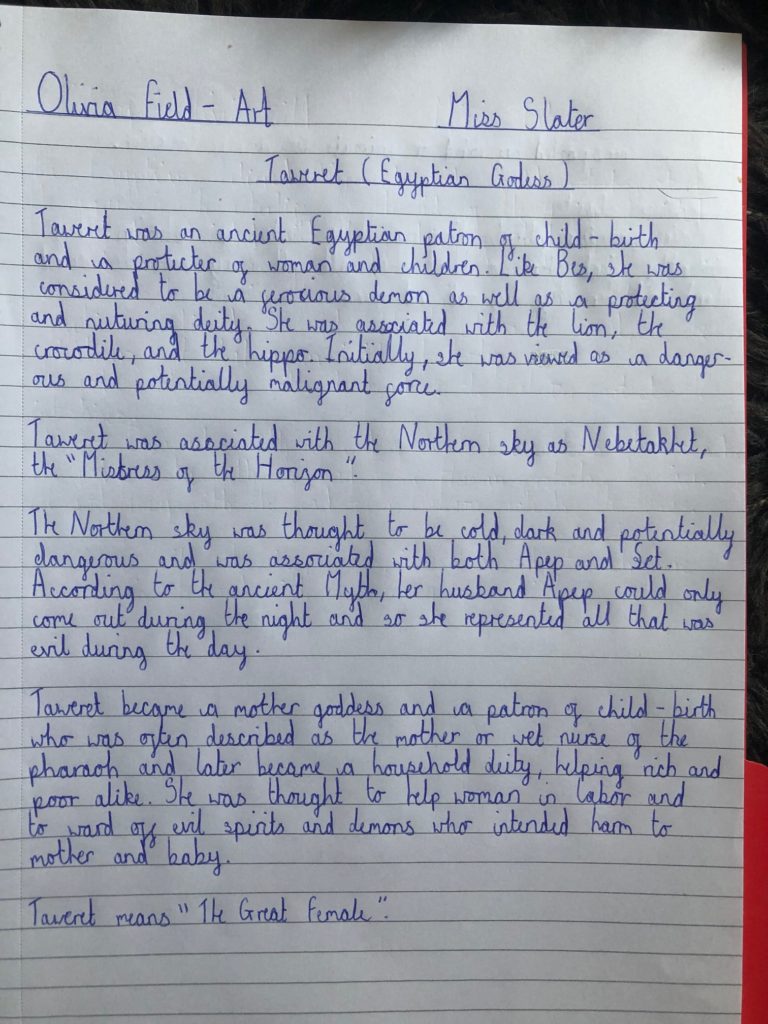 Olivia Field - Art Miss Slater
Taweret (Egyptian Godess)
Taweret was an ancient Egyptian patron of child-birth
and a protecter of woman and children. Like Bes, she was
considered to be a ferocious demon as well as a protecting
and nuturing deity. She was associated with the lion, the
crocodile, and the hippo. Initially, she was viewed as a danger-
ous and potentially malignant force.
Taweret was associated with the Northern sky as Nebetakhet,
the "Mistress of the Horizon".
The Northern sky was thought to be cold, dark and potentially
dangerous and was associated with both Apep and Set.
According to the ancient Myth, her husband Apep could only
come out during the night and so she represented all that was
evil during the day.
Taweret became a mother goddess and a patron of child-birth
who was often described as the mother or wet nurse of the
pharaoh and later became a household deity, helping rich and
poor alike. She was thought to help woman in labor and
to ward off evil spirits and demons who intended harm to
mother and baby.
Taweret means "The Great Female".